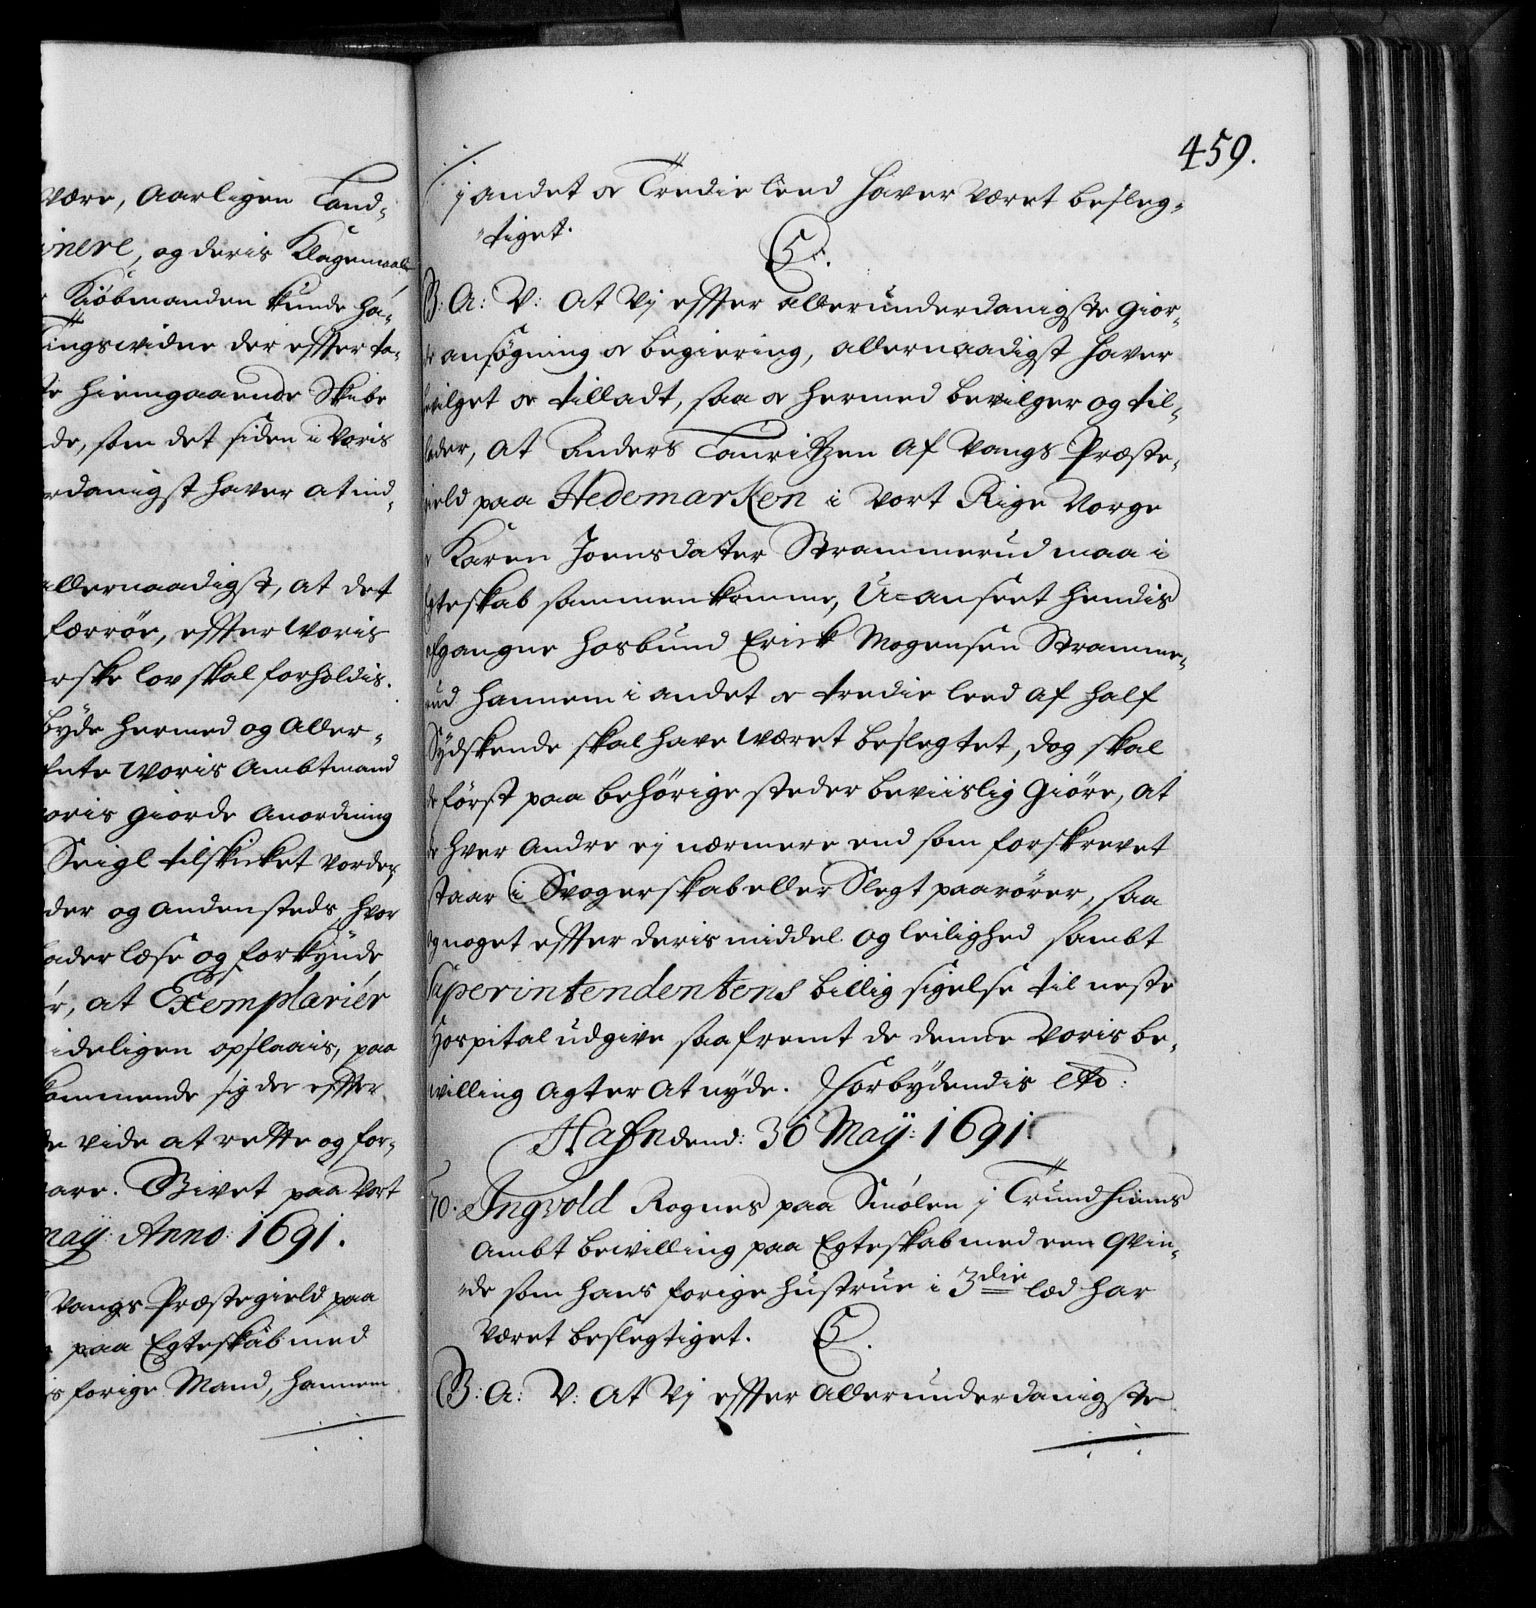 være, Aarligen Land-
inere, og deris Klagemaale
Kiöbmanden kunde ha-
Tingsvidne der effter ta-
hiemgaaende Skibe
de, som det siden i Voris
rdanigst haver at ind-
allernaadigst, at det
Færröe, effter Woris
rske lov skal forholdis.
byde hermed og Aller-
Woris Ambtmand
oris giorde Anordning
Seigl tilskicket vorder,
der og andensteds, hvor
ader læse og forkynde
r, at Exemplarier
ideligen opslaais, paa
kommende sig der effter
de vide at rette og for-
are. Givet paa Vort
may: Anno: 1691.
Vangs Præstegield paa
paa Egteskab med
is forige Mand, hannem
459.
j andet oc Tredie leed haver været besleg-
tiget.
C.
B: A: V: at Vj effter allerunderdanigste gior-
de ansøgning oc begiering, allernaadigst haver
bevilget oc tilladt, saa oc hermed bevilger og til-
lader, at Anders Lauritzen af Vangs Præste-
gield paa Hedemarken i Vort Rige Norge
oc Karen Joensdater Strammerud maa i
Egteskab sammenkomme, U-anseet hendis
afgangne Hosbund Erick Mogensen Stramme-
rud hannem i andet oc tredie leed af half
Sydskende skal have været beslegtet, dog skal
de först paa behörige steder beviislig giöre, at
de hver andre ej nærmere end som forskrevet
staar i Svogerskab eller Slegt paarörer, saa
og noget effter deris middel og leilighed sambt
Superintendentens billig sigelse til neste
Hospital udgive saafremt de denne Voris be-
willing agter at nyde. Forbydendis etc:
Hafn dend: 30 May: 1691.
70. Ingvold Rognes paa Smølen j Trundhiems
Ambt bevilling paa Egteskab med een Qvin-
de som hans forige hustrue i 3die led har
været beslegtiget. C.
B: A: V: at Vj effter allerunderdanigste